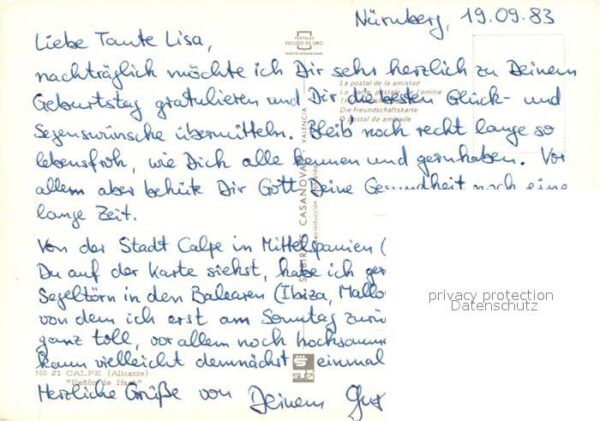 Nürnberg, 19.09.83
Liebe Tante Lisa,
nachträglich möchte ich Dir sehr herzlich zu Deinem
Geburtstag gratulieren und Dir die besten Glück- und
Segenswünsche übermitteln. Bleib noch recht lange so
lebensfroh, wie Dich alle kennen und gernhaben. Vor
allem aber behüte Dir Gott Deine Gesundheit noch eine
lange Zeit.
Von der Stadt Calpe in Mittelspanien (
Du auf der Karte siehst, habe ich
Segeltörn in den Balearen (Ibiza,
von dem ich erst am Sonntag
ganz toll, vor allem noch
kann vielleicht demnächst einmal
Herzliche Grüße von Deinem
ESCUDO DE ORO
La postal de la amistad
Die Freundschaftskarte
O postal da amizade
CASANOVA
VALENCIA
Nº 21 CALPE (Alicante)
privacy protection
Datenschutz